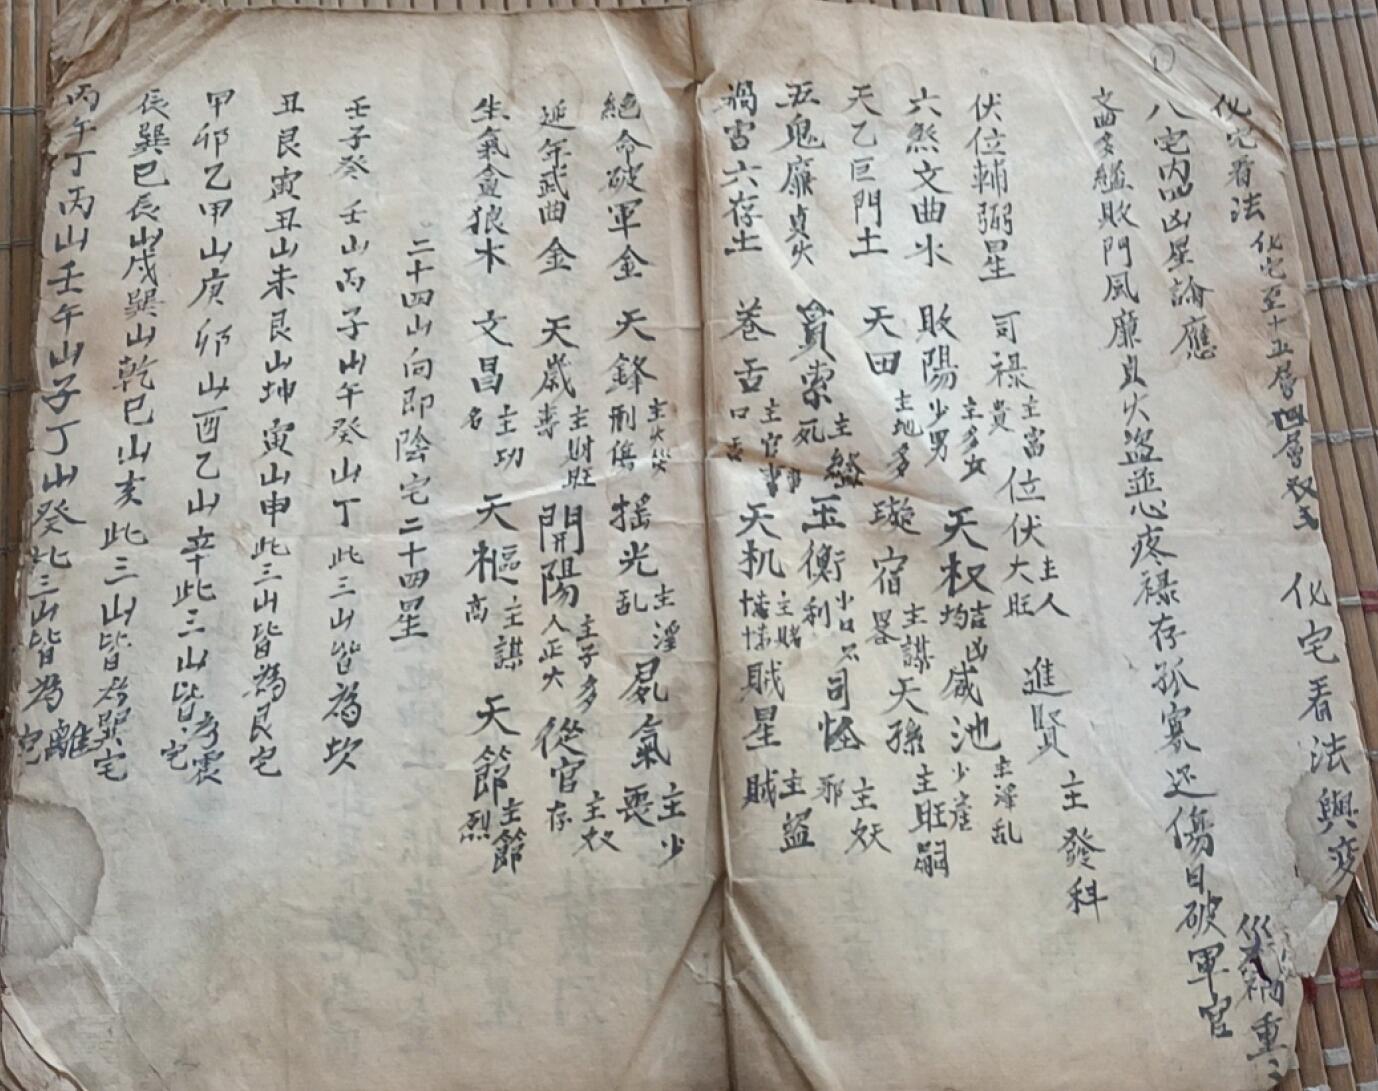 化宅看法與變
化宅看法 化宅至十五層四層
八宅內四凶星論應
文曲多艦敗門風廉貞火盜並心疼祿存孤寡还傷目破軍官
災禍重
伏位輔弼星 司祿主富貴 位伏主人大旺 進賢主發科
六煞文曲水 敗陽主多女少男 天权吉凶均 咸池主淫乱少産
天乙巨門土 天田主地多 璇宿主謀畧 天孫主旺嗣
五鬼廉貞火 貫索主縊死 玉衡小口不利 司怪主妖邪
禍害六存土 巻舌主官事口舌 天机主赌 賊星主盜賊
絕命破軍金 天鋒主火災刑傷 揺光主淫乱 屍氣主少喪
延年武曲金 天歲主財旺壽 開陽主子多人正大 從官主奴存
生氣貪狼木 文昌主功名 天樞主謀高 天節主節烈
二十四山向即陰宅二十四星
壬子癸壬山丙子山午癸山丁此三山皆為坎
丑艮寅丑山未艮山坤寅山申此三山皆為艮宅
甲卯乙甲山庚卯山酉乙山辛此三山皆為震宅
辰巽巳辰山戌巽山乾巳山亥此三山皆為巽宅
丙午丁丙山壬午山子丁山癸此三山皆為離宅